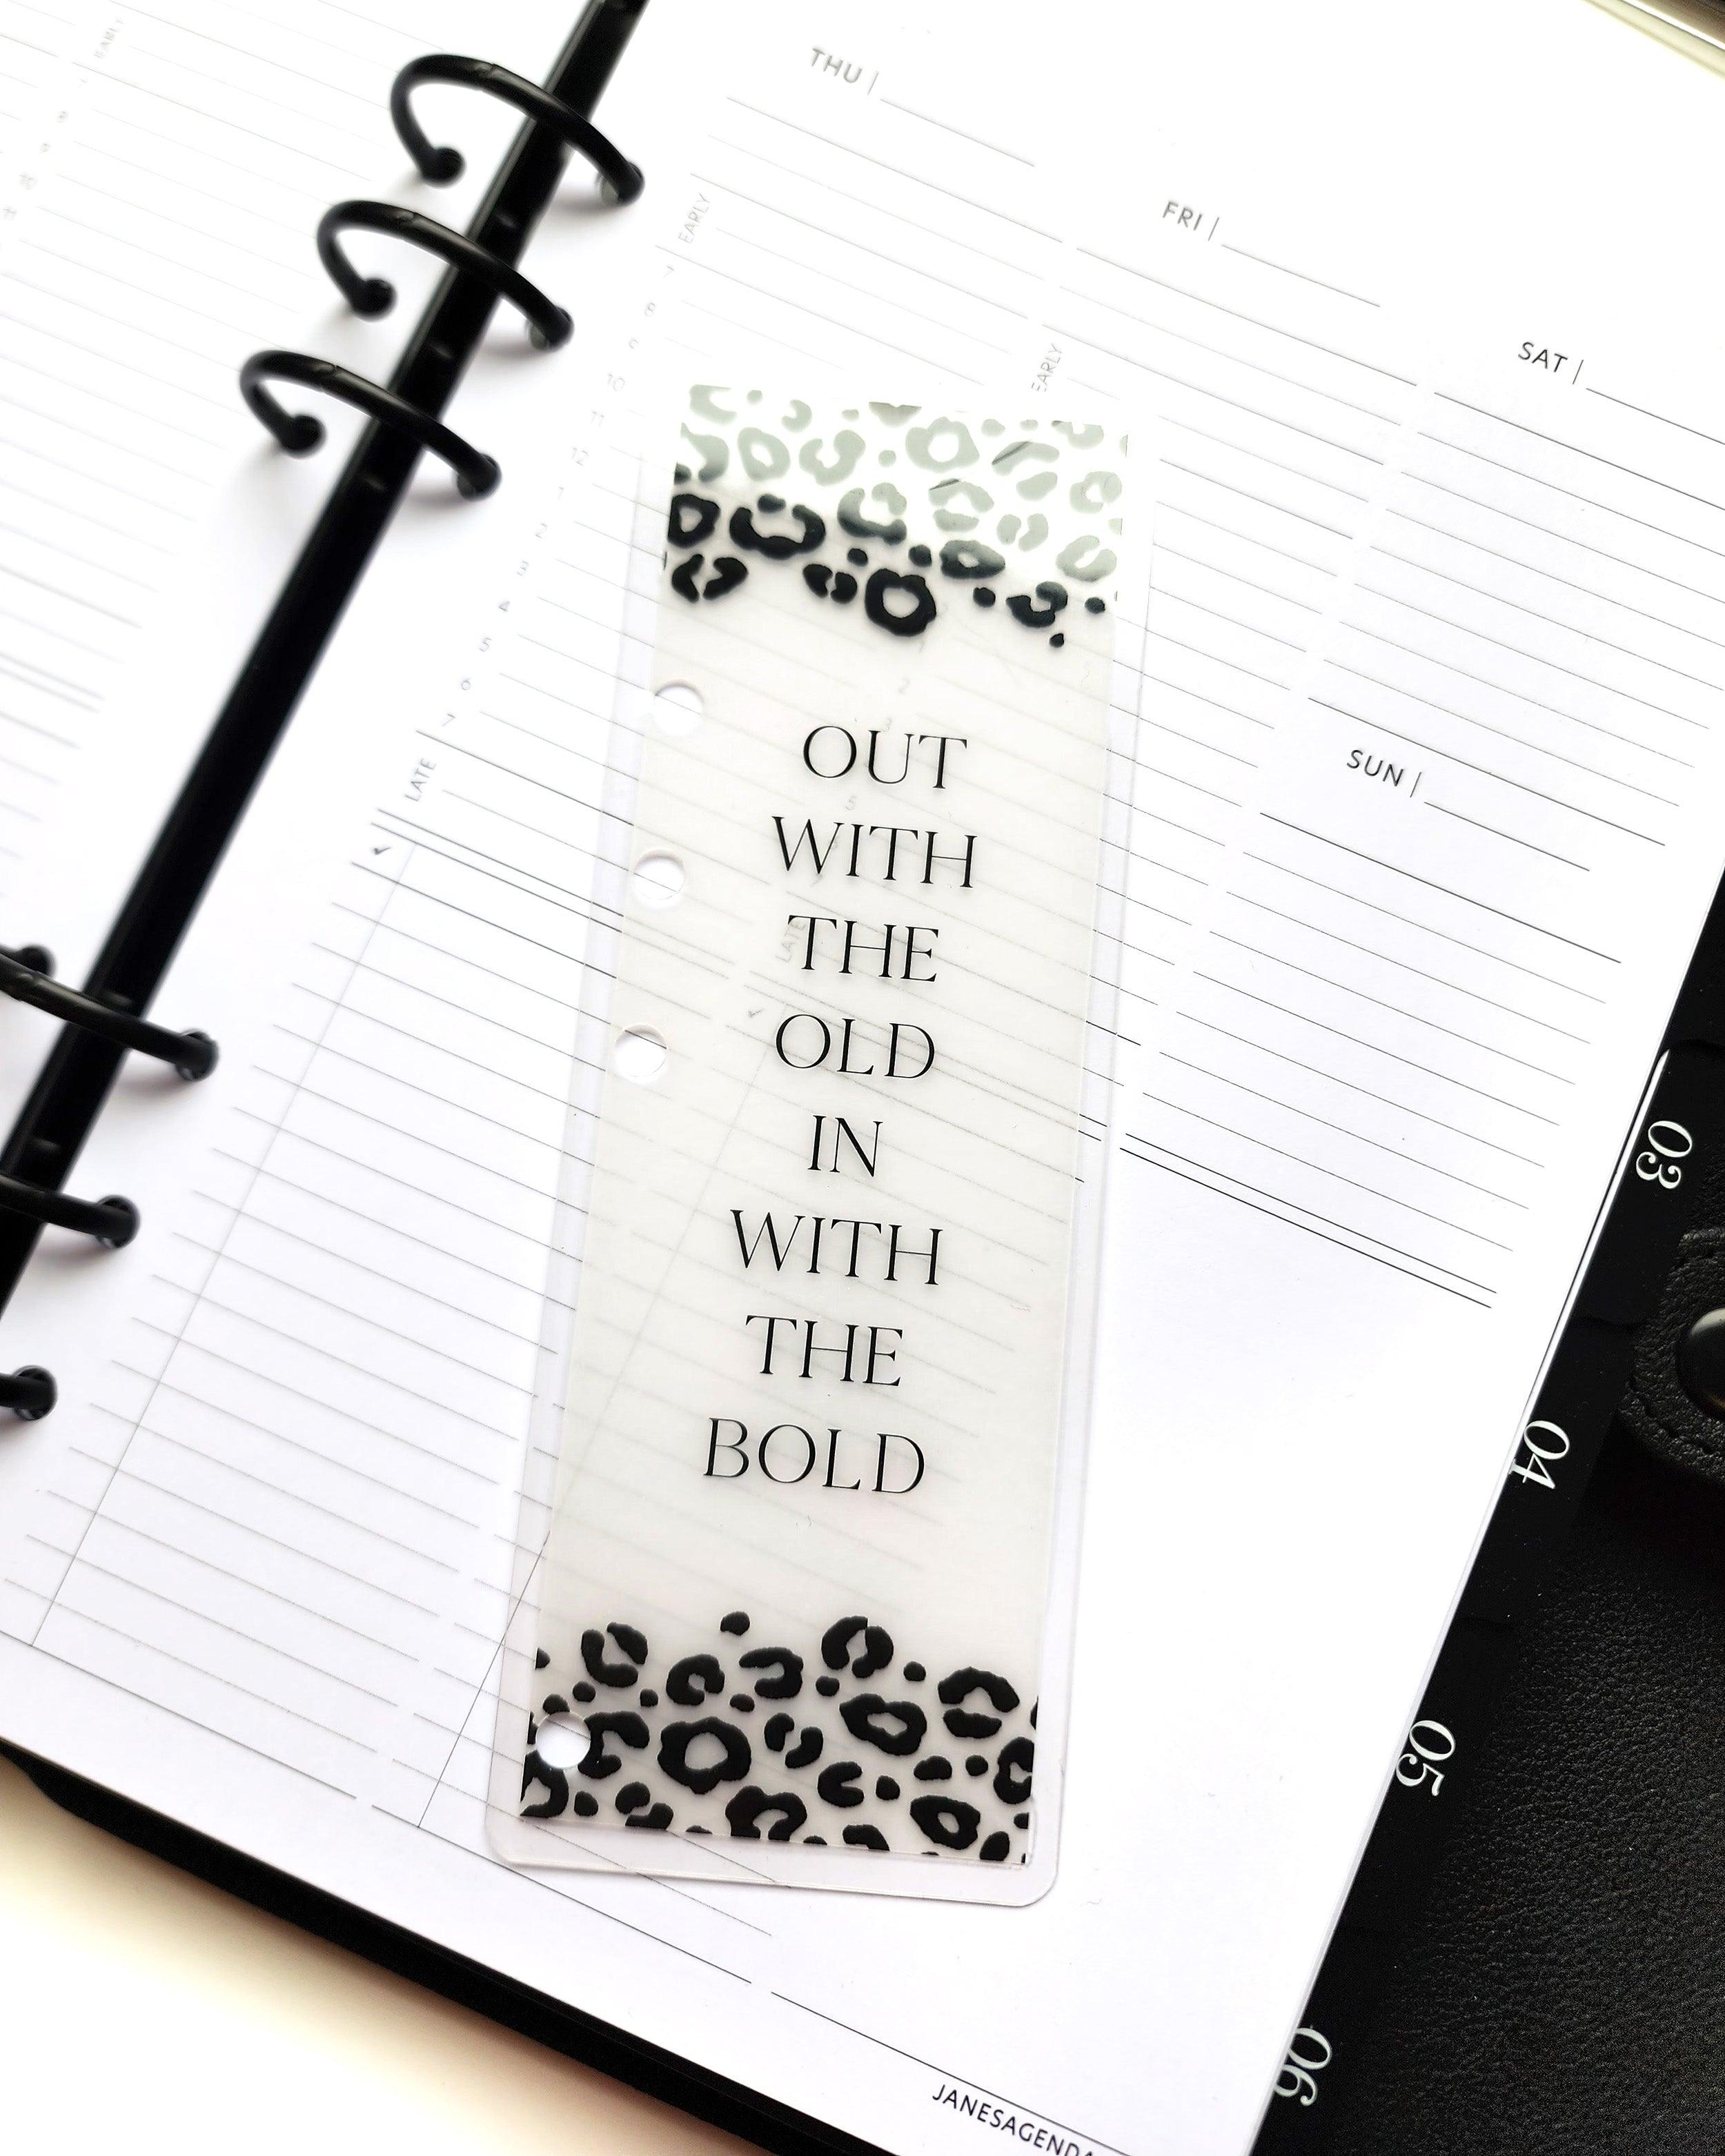 THU |
FRI |
SAT |
SUN |
EARLY
EARLY
EARLY
7
8
9
10
11
12
1
2
3
4
5
6
7
LATE
OUT
WITH
THE
OLD
IN
WITH
THE
BOLD
LATE
03
04
05
06
JANESAGENDA